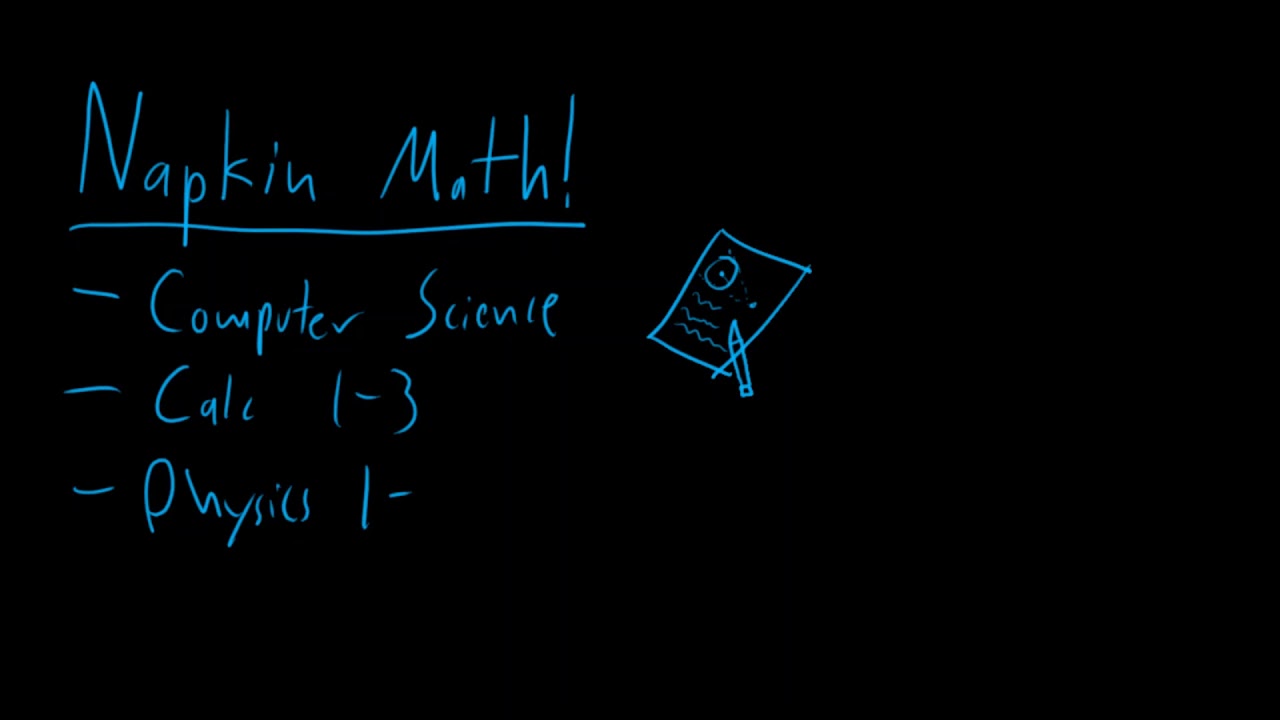 Napkin Math!
- Computer Science
- Calc 1-3
- Physics 1-